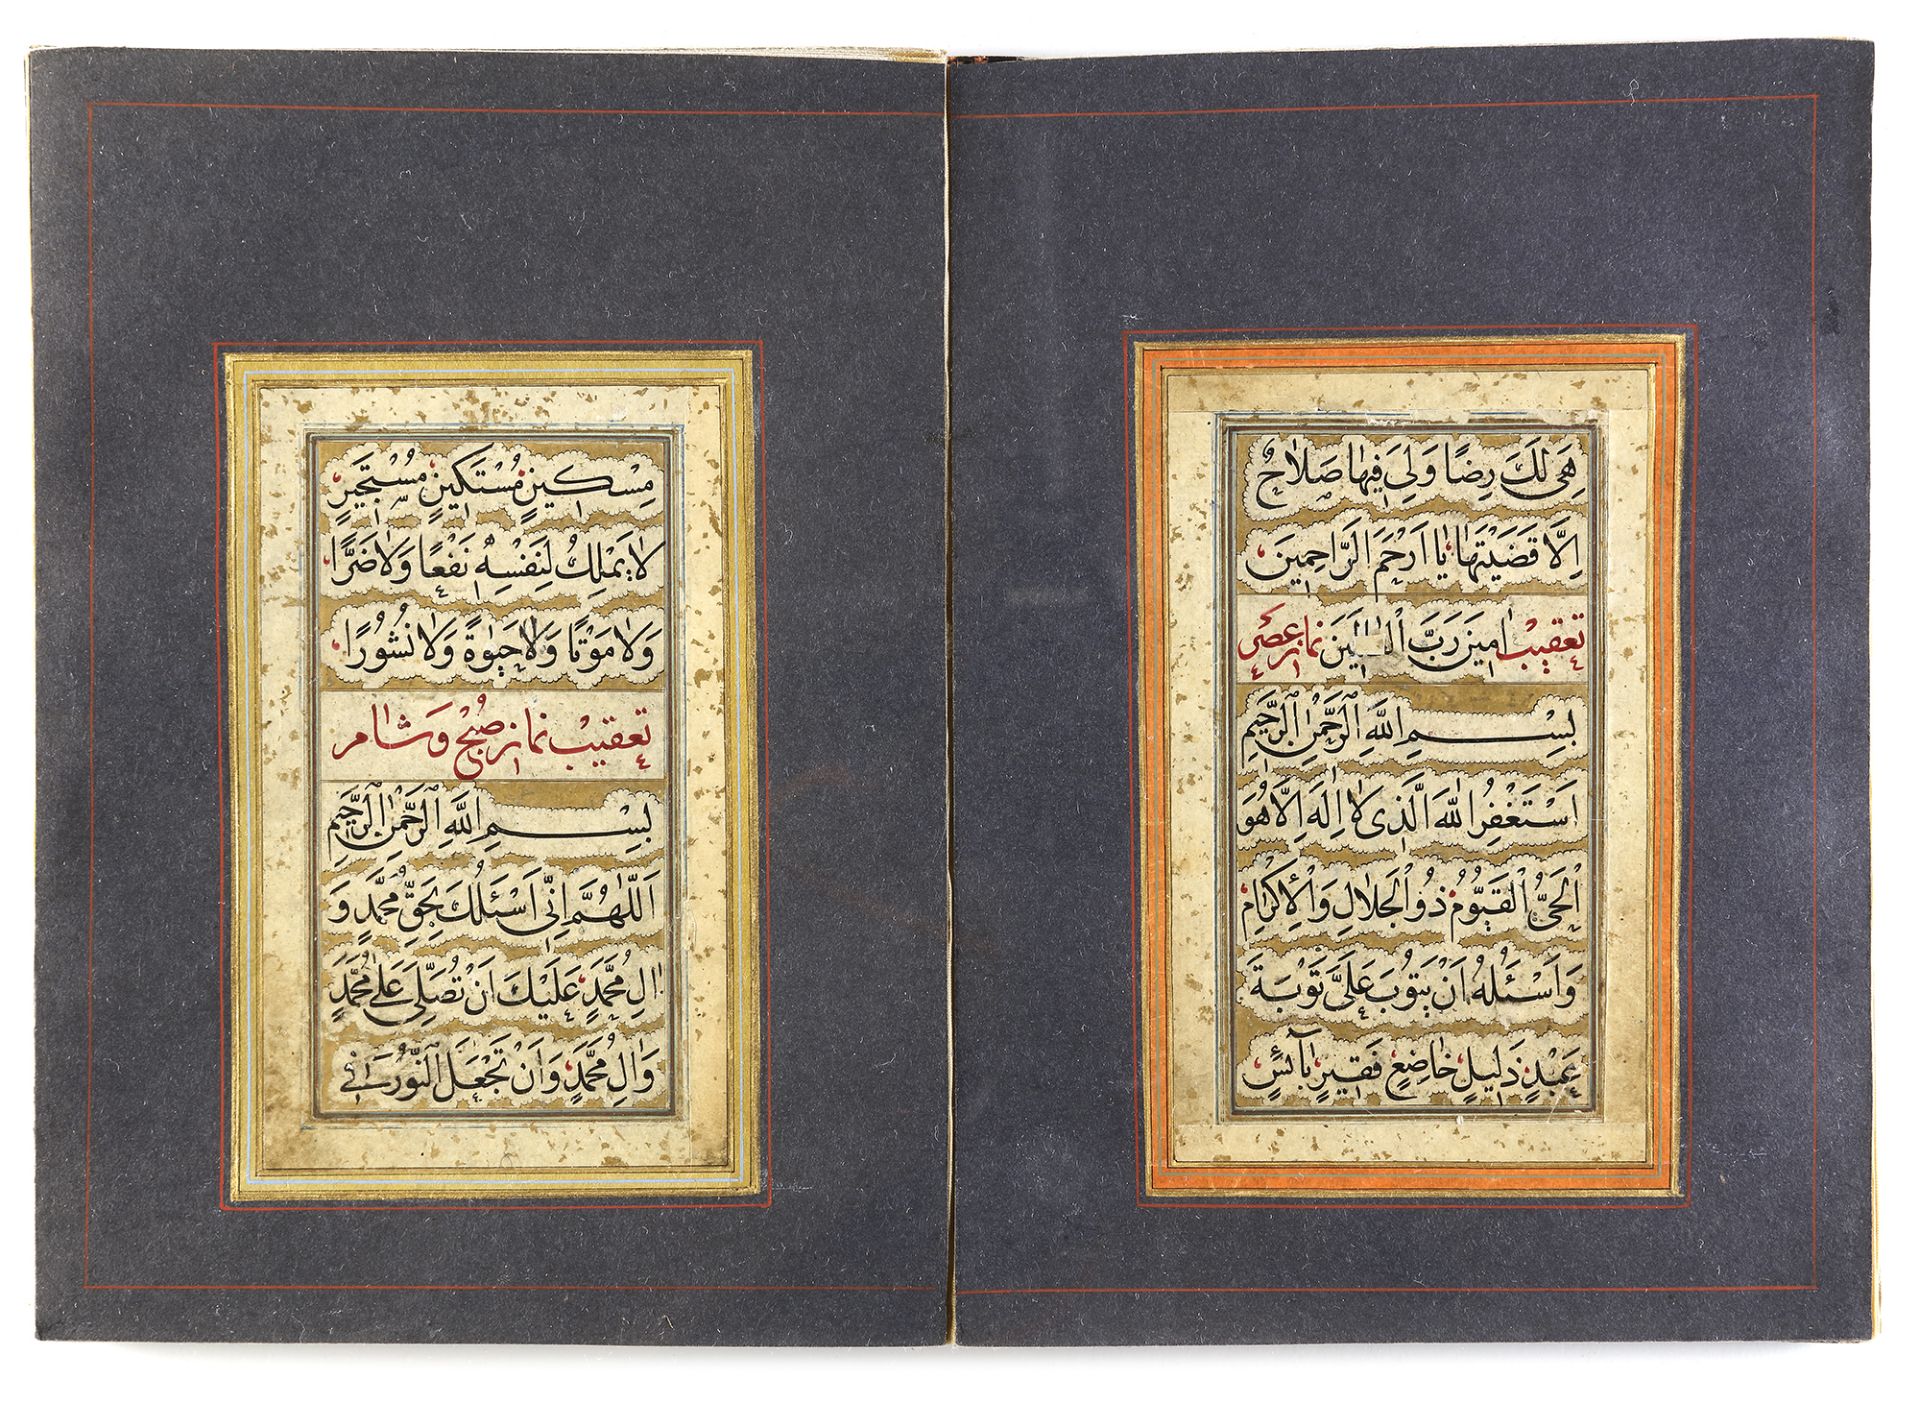 هِيَ لَكَ رِضًا وَلِيَ فِيهَا صَلَاحٌ
اِلَّا قَضَيْتَهَا يَا اَرْحَمَ الرَّاحِمِينَ
تعقيب امِينَ رَبَّ الْعَالَمِينَ نماز عصر
بِسْمِ اللَّهِ الرَّحْمٰنِ الرَّحِيمِ
اَسْتَغْفِرُ اللَّهَ الَّذِي لَا اِلٰهَ اِلَّا هُوَ
الْحَيُّ الْقَيُّومُ ذُو الْجَلَالِ وَالْاِكْرَامِ
وَاَسْئَلُهُ اَنْ يَتُوبَ عَلَيَّ تَوْبَةَ
عَبْدٍ ذَلِيلٍ خَاضِعٍ فَقِيرٍ بَآئِسٍ
مِسْكِينٍ مُسْتَكِينٍ مُسْتَجِيرٍ
لَا يَمْلِكُ لِنَفْسِهِ نَفْعًا وَلَا ضَرًّا
وَلَا مَوْتًا وَلَا حَيٰوةً وَلَا نُشُورًا
تعقيب نماز صبح و شام
بِسْمِ اللَّهِ الرَّحْمٰنِ الرَّحِيمِ
اَللّٰهُمَّ اِنِّي اَسْئَلُكَ بِحَقِّ مُحَمَّدٍ وَ
اٰلِ مُحَمَّدٍ عَلَيْكَ اَنْ تُصَلِّيَ عَلٰى مُحَمَّدٍ
وَاٰلِ مُحَمَّدٍ وَاَنْ تَجْعَلَ النُّورَ فِي